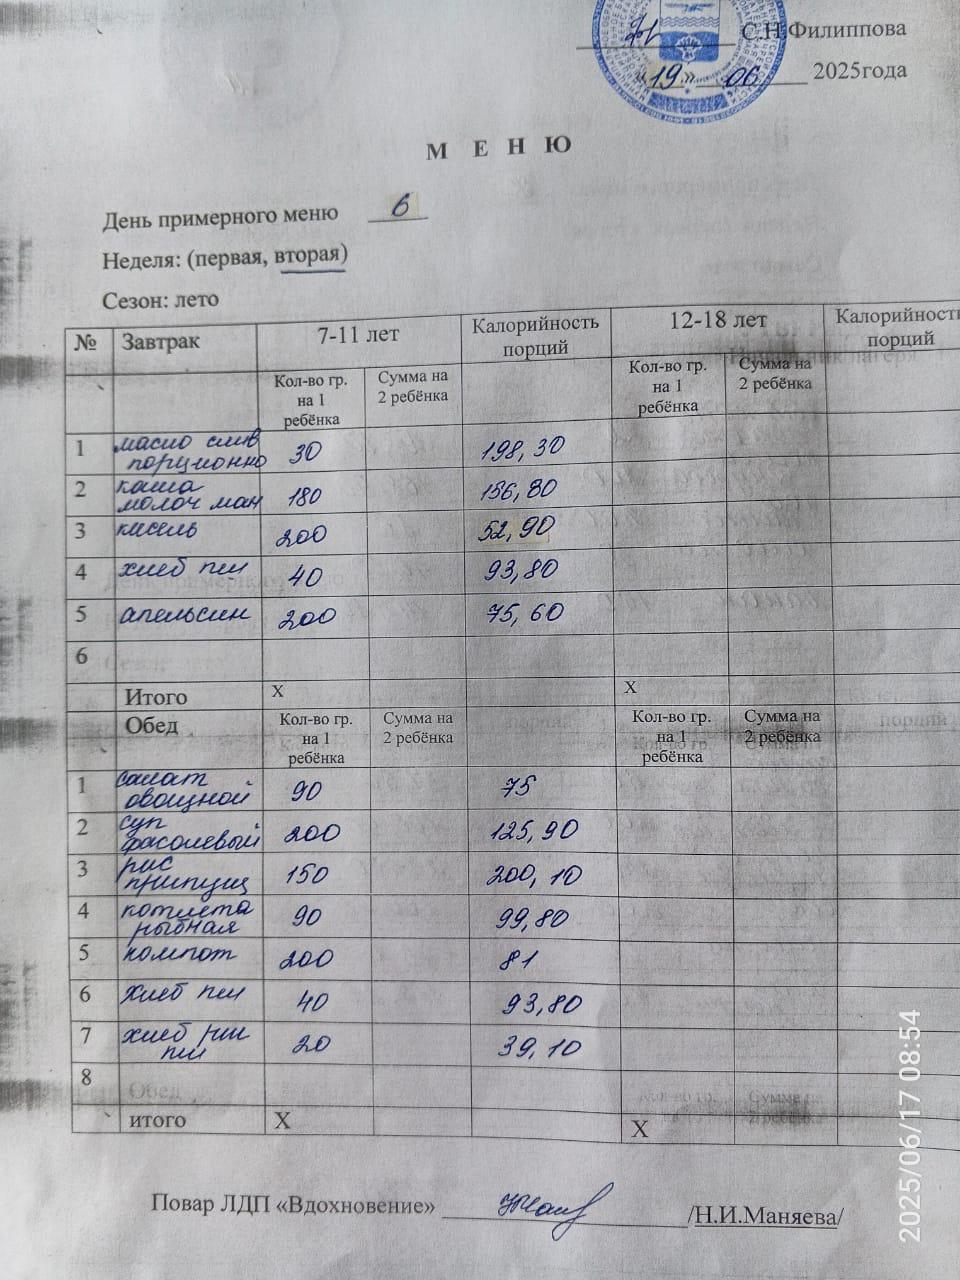 С.Н.Филиппова
«19» 06 2025года
М Е Н Ю
День примерного меню 6
Неделя: (первая, вторая)
Сезон: лето
№ Завтрак 7-11 лет Калорийность порций 12-18 лет Калорийность порций
Кол-во гр. на 1 ребёнка Сумма на 2 ребёнка Кол-во гр. на 1 ребёнка Сумма на 2 ребёнка
1 масло слив порционно 30 198,30
2 каша молоч ман 180 156,80
3 кисель 200 52,90
4 хлеб пш 40 93,80
5 апельсин 200 75,60
6
Итого X X
Обед Кол-во гр. на 1 ребёнка Сумма на 2 ребёнка Кол-во гр. на 1 ребёнка Сумма на 2 ребёнка
1 салат овощной 90 75
2 суп фасолевый 200 125,90
3 рис припущ 150 200,10
4 котлета рыбная 90 99,80
5 компот 200 81
6 хлеб пш 40 93,80
7 хлеб рж пш 20 39,10
8
итого X X
Повар ЛДП «Вдохновение» /Н.И.Маняева/
2025/06/17 08:54